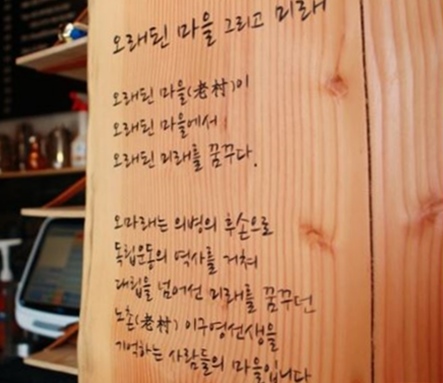 오래된 마을 그리고 미래
오래된 마을(老村)이
오래된 마을에서
오래된 미래를 꿈꾸다.
오마래는 의병의 후손으로
독립운동의 역사를 거쳐
대립을 넘어선 미래를 꿈꾸던
노촌(老村) 이구영선생을
기억하는 사람들의 마을입니다